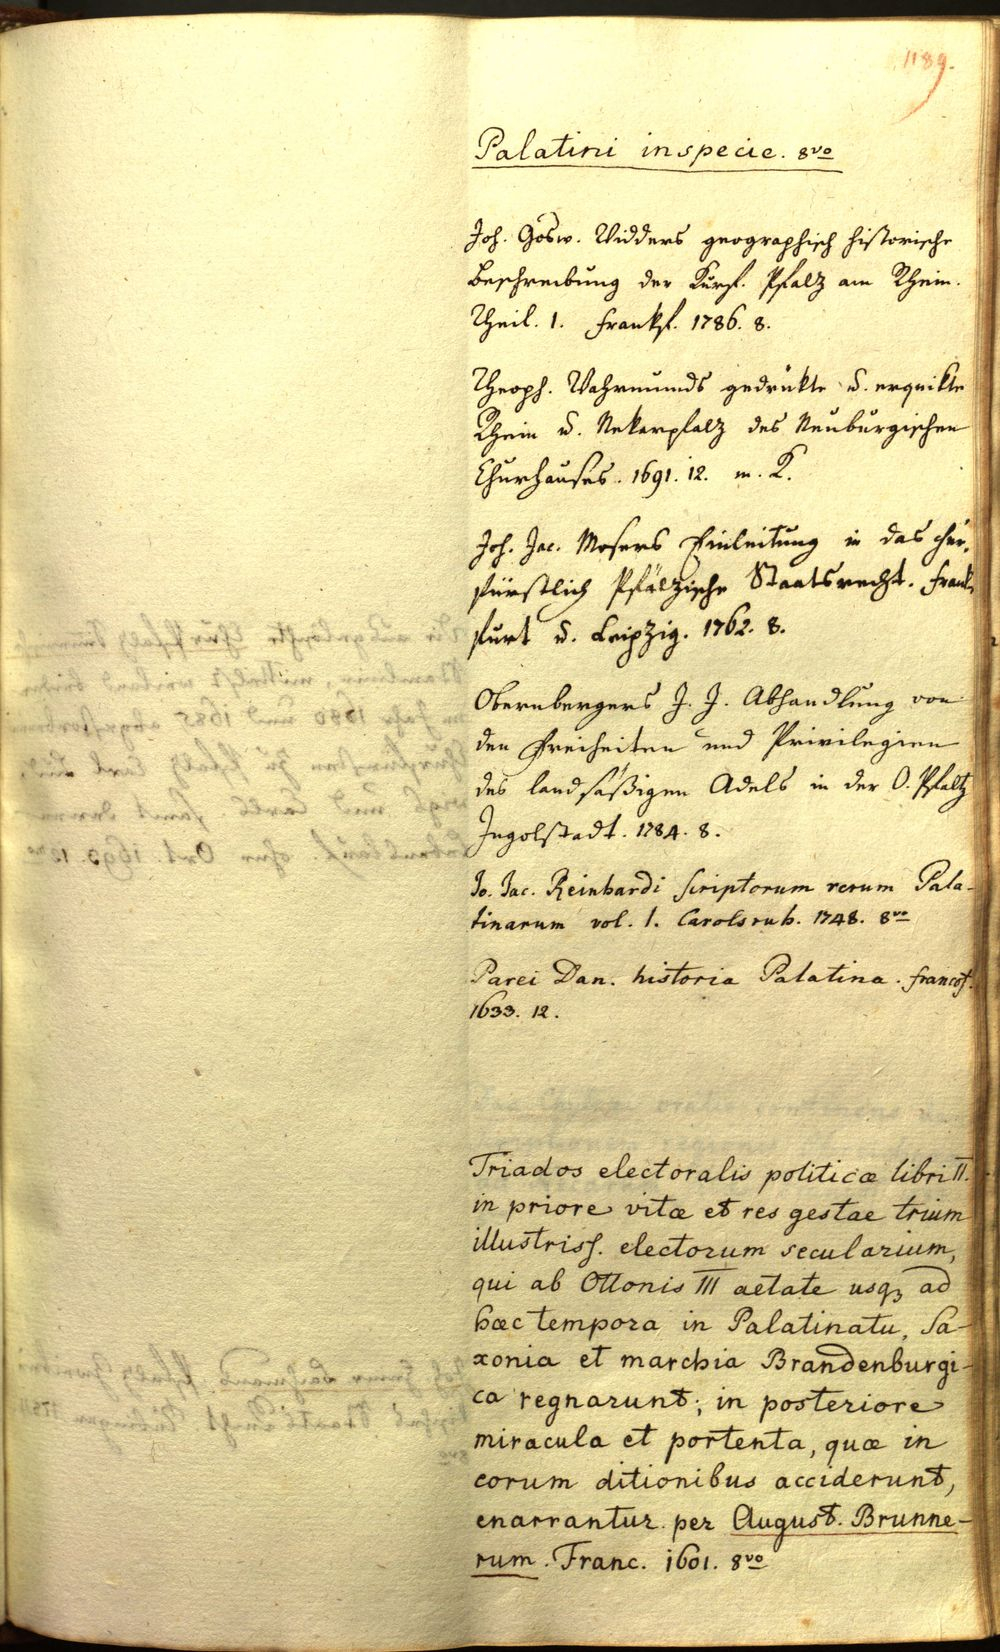 1189.
Palatini in specie. 8vo
Joh. Gosw. Widders geographisch historische
Beschreibung der Kurf. Pfalz am Rhein.
Theil. 1. Frankf. 1786. 8.
Theoph. Wahrmunds gedrükte u. erquikte
Rhein u. Nekarpfalz des Neuburgischen
Churhauses. 1691. 12. m. K.
Joh. Jac. Mosers Einleitung in das chur-
fürstlich Pfälzische Staatsrecht. Frank-
furt u. Leipzig. 1762. 8.
Obernbergers J. J. Abhandlung von
den Freiheiten und Privilegien
des landsäßigen Adels in der O. Pfaltz
Ingolstadt. 1784. 8.
Jo. Jac. Reinhardi scriptorum rerum Pala-
tinarum vol. 1. Carolsruh. 1748. 8vo
Parei Dan. historia Palatina. francof.
1633. 12.
Triados electoralis politicæ libri II.
in priore vitæ et res gestae trium
illustriss. electorum secularium,
qui ab Ottonis III aetate usq3 ad
hæc tempora in Palatinatu, Sa-
xonia et marchia Brandenburgi-
ca regnarunt; in posteriore
miracula et portenta, quæ in
eorum ditionibus acciderunt,
enarrantur per August. Brunne-
rum. Franc. 1601. 8vo